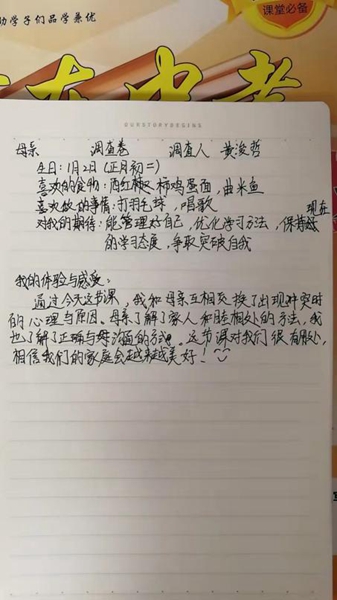 助学子们品学兼优
课堂必备
中考
母亲 调查卷 调查人 黄浚哲
生日：1月2日（正月初二）
喜欢的食物：西红柿鸡蛋面，曲米鱼
喜欢做的事情：打羽毛球，唱歌
对我的期待：能管理好自己，优化学习方法，保持现在
的学习态度，争取突破自我
我的体验与感受：
通过今天这节课，我和母亲互相交换了出现冲突时
的心理与原因。母亲了解了家人和睦相处的方法，我
也了解了正确与母沟通的方式。这节课对我们很有用处，
相信我们的家庭会越来越美好！